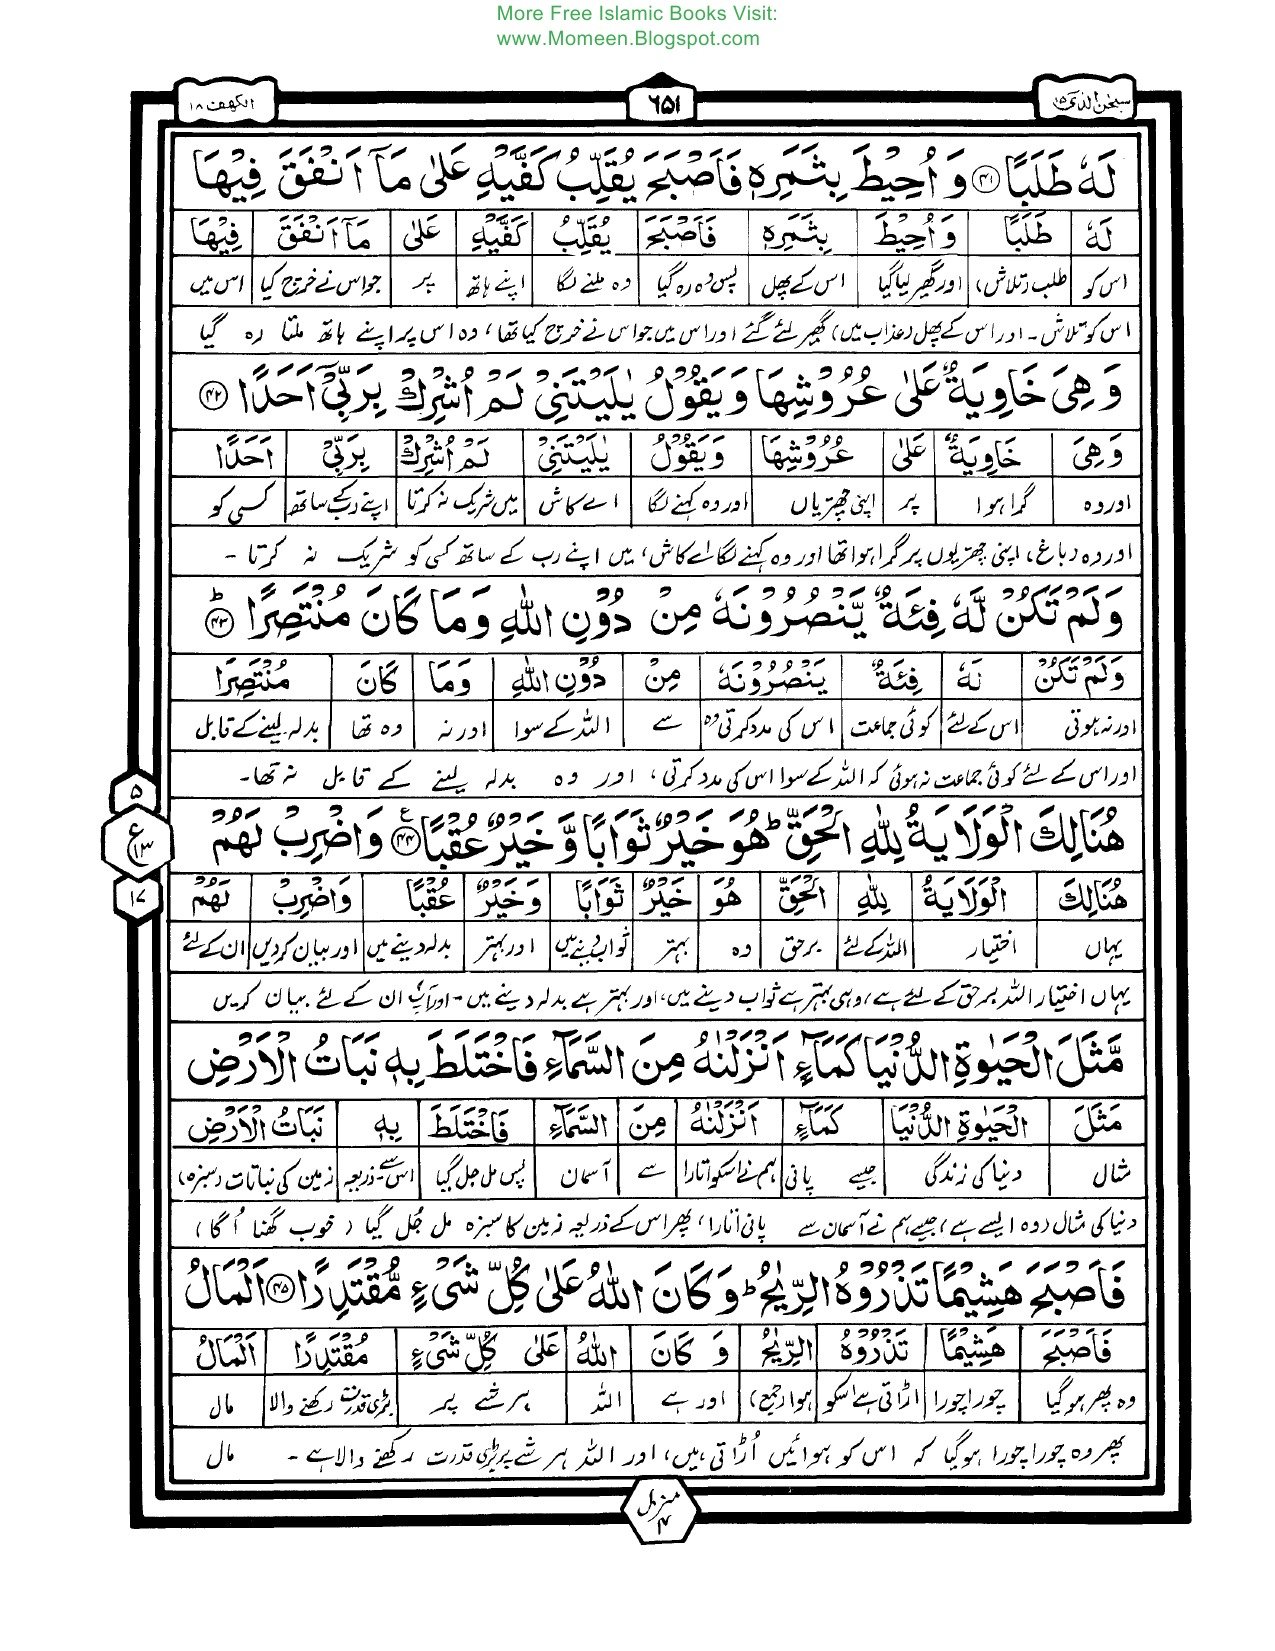 More Free Islamic Books Visit:
www.Momeen.Blogspot.com
سبحٰن الذی ۱۵
۶۵۱
الکھف ۱۸
لَهٗ طَلَبًا ﴿۴۱﴾ وَاُحِيْطَ بِثَمَرِهٖ فَاَصْبَحَ يُقَلِّبُ كَفَّيْهِ عَلٰى مَآ اَنْفَقَ فِيْهَا
لَهٗ طَلَبًا وَاُحِيْطَ بِثَمَرِهٖ فَاَصْبَحَ يُقَلِّبُ كَفَّيْهِ عَلٰى مَآ اَنْفَقَ فِيْهَا
اس کو طلب (تلاش) اور گھیر لیا گیا اس کے پھل پس وہ رہ گیا وہ ملنے لگا اپنے ہاتھ پر جو اس نے خرچ کیا اس میں
اس کو تلاش ۔ اور اس کے پھل (عذاب میں) گھیر لئے گئے اور اس میں جو اس نے خرچ کیا تھا، وہ اس پر اپنے ہاتھ ملتا رہ گیا
وَهِىَ خَاوِيَةٌ عَلٰى عُرُوْشِهَا وَيَقُوْلُ يٰلَيْتَنِىْ لَمْ اُشْرِكْ بِرَبِّىْٓ اَحَدًا ﴿۴۲﴾
وَهِىَ خَاوِيَةٌ عَلٰى عُرُوْشِهَا وَيَقُوْلُ يٰلَيْتَنِىْ لَمْ اُشْرِكْ بِرَبِّىْٓ اَحَدًا
اور وہ گرا ہوا پر اپنی چھتریاں اور وہ کہنے لگا اے کاش میں شریک نہ کرتا اپنے رب کے ساتھ کسی کو
اور وہ (باغ) اپنی چھتریوں پر گرا ہوا تھا اور وہ کہنے لگا اے کاش، میں اپنے رب کے ساتھ کسی کو شریک نہ کرتا ۔
وَلَمْ تَكُنْ لَّهٗ فِئَةٌ يَّنْصُرُوْنَهٗ مِنْ دُوْنِ اللّٰهِ وَمَا كَانَ مُنْتَصِرًا ؕ﴿۴۳﴾
وَلَمْ تَكُنْ لَهٗ فِئَةٌ يَنْصُرُوْنَهٗ مِنْ دُوْنِ اللّٰهِ وَمَا كَانَ مُنْتَصِرًا
اور نہ ہوتی اس کے لئے کوئی جماعت اس کی مدد کرتی وہ سے اللہ کے سوا اور نہ وہ تھا بدلہ لینے کے قابل
اور اس کے لئے کوئی جماعت نہ ہوئی کہ اللہ کے سوا اس کی مدد کرتی، اور وہ بدلہ لینے کے قابل نہ تھا۔
هُنَالِكَ الْوَلَايَةُ لِلّٰهِ الْحَقِّ ؕ هُوَ خَيْرٌ ثَوَابًا وَّخَيْرٌ عُقْبًا ﴿۴۴﴾ع وَاضْرِبْ لَهُمْ
هُنَالِكَ الْوَلَايَةُ لِلّٰهِ الْحَقِّ هُوَ خَيْرٌ ثَوَابًا وَخَيْرٌ عُقْبًا وَاضْرِبْ لَهُمْ
یہاں اختیار اللہ کے لئے برحق وہ بہتر ثواب دینے میں اور بہتر بدلہ دینے میں اور بیان کر دیں ان کے لئے
یہاں اختیار اللہ برحق کے لئے ہے، وہی بہتر ہے ثواب دینے میں، اور بہتر ہے بدلہ دینے میں ۔ اور آپ ان کے لئے بیان کریں
۵
ع
۱۳
۱۷
مَّثَلَ الْحَيٰوةِ الدُّنْيَا كَمَآءٍ اَنْزَلْنٰهُ مِنَ السَّمَآءِ فَاخْتَلَطَ بِهٖ نَبَاتُ الْاَرْضِ
مَثَلَ الْحَيٰوةِ الدُّنْيَا كَمَآءٍ اَنْزَلْنٰهُ مِنَ السَّمَآءِ فَاخْتَلَطَ بِهٖ نَبَاتُ الْاَرْضِ
مثال دنیا کی زندگی جیسے پانی ہم نے اسکو اتارا سے آسمان پس مل جل گیا اس کے ذریعہ زمین کی نباتات (سبزہ)
دنیا کی مثال (وہ ایسے ہے) جیسے ہم نے آسمان سے پانی اتارا، پھر اس کے ذریعہ زمین کا سبزہ مل جُل گیا (خوب گھنا اُگا)
فَاَصْبَحَ هَشِيْمًا تَذْرُوْهُ الرِّيٰحُ ؕ وَكَانَ اللّٰهُ عَلٰى كُلِّ شَىْءٍ مُّقْتَدِرًا ﴿۴۵﴾ اَلْمَالُ
فَاَصْبَحَ هَشِيْمًا تَذْرُوْهُ الرِّيٰحُ وَكَانَ اللّٰهُ عَلٰى كُلِّ شَىْءٍ مُقْتَدِرًا اَلْمَالُ
وہ پھر ہو گیا چورا چورا اڑاتی ہے اسکو ہوا (جمع) اور ہے اللہ ہر شے پر بڑی قدرت رکھنے والا مال
پھر وہ چورا چورا ہو گیا کہ اس کو ہوائیں اُڑاتی ہیں، اور اللہ ہر شے پر بڑی قدرت رکھنے والا ہے ۔ مال
منزل
۴